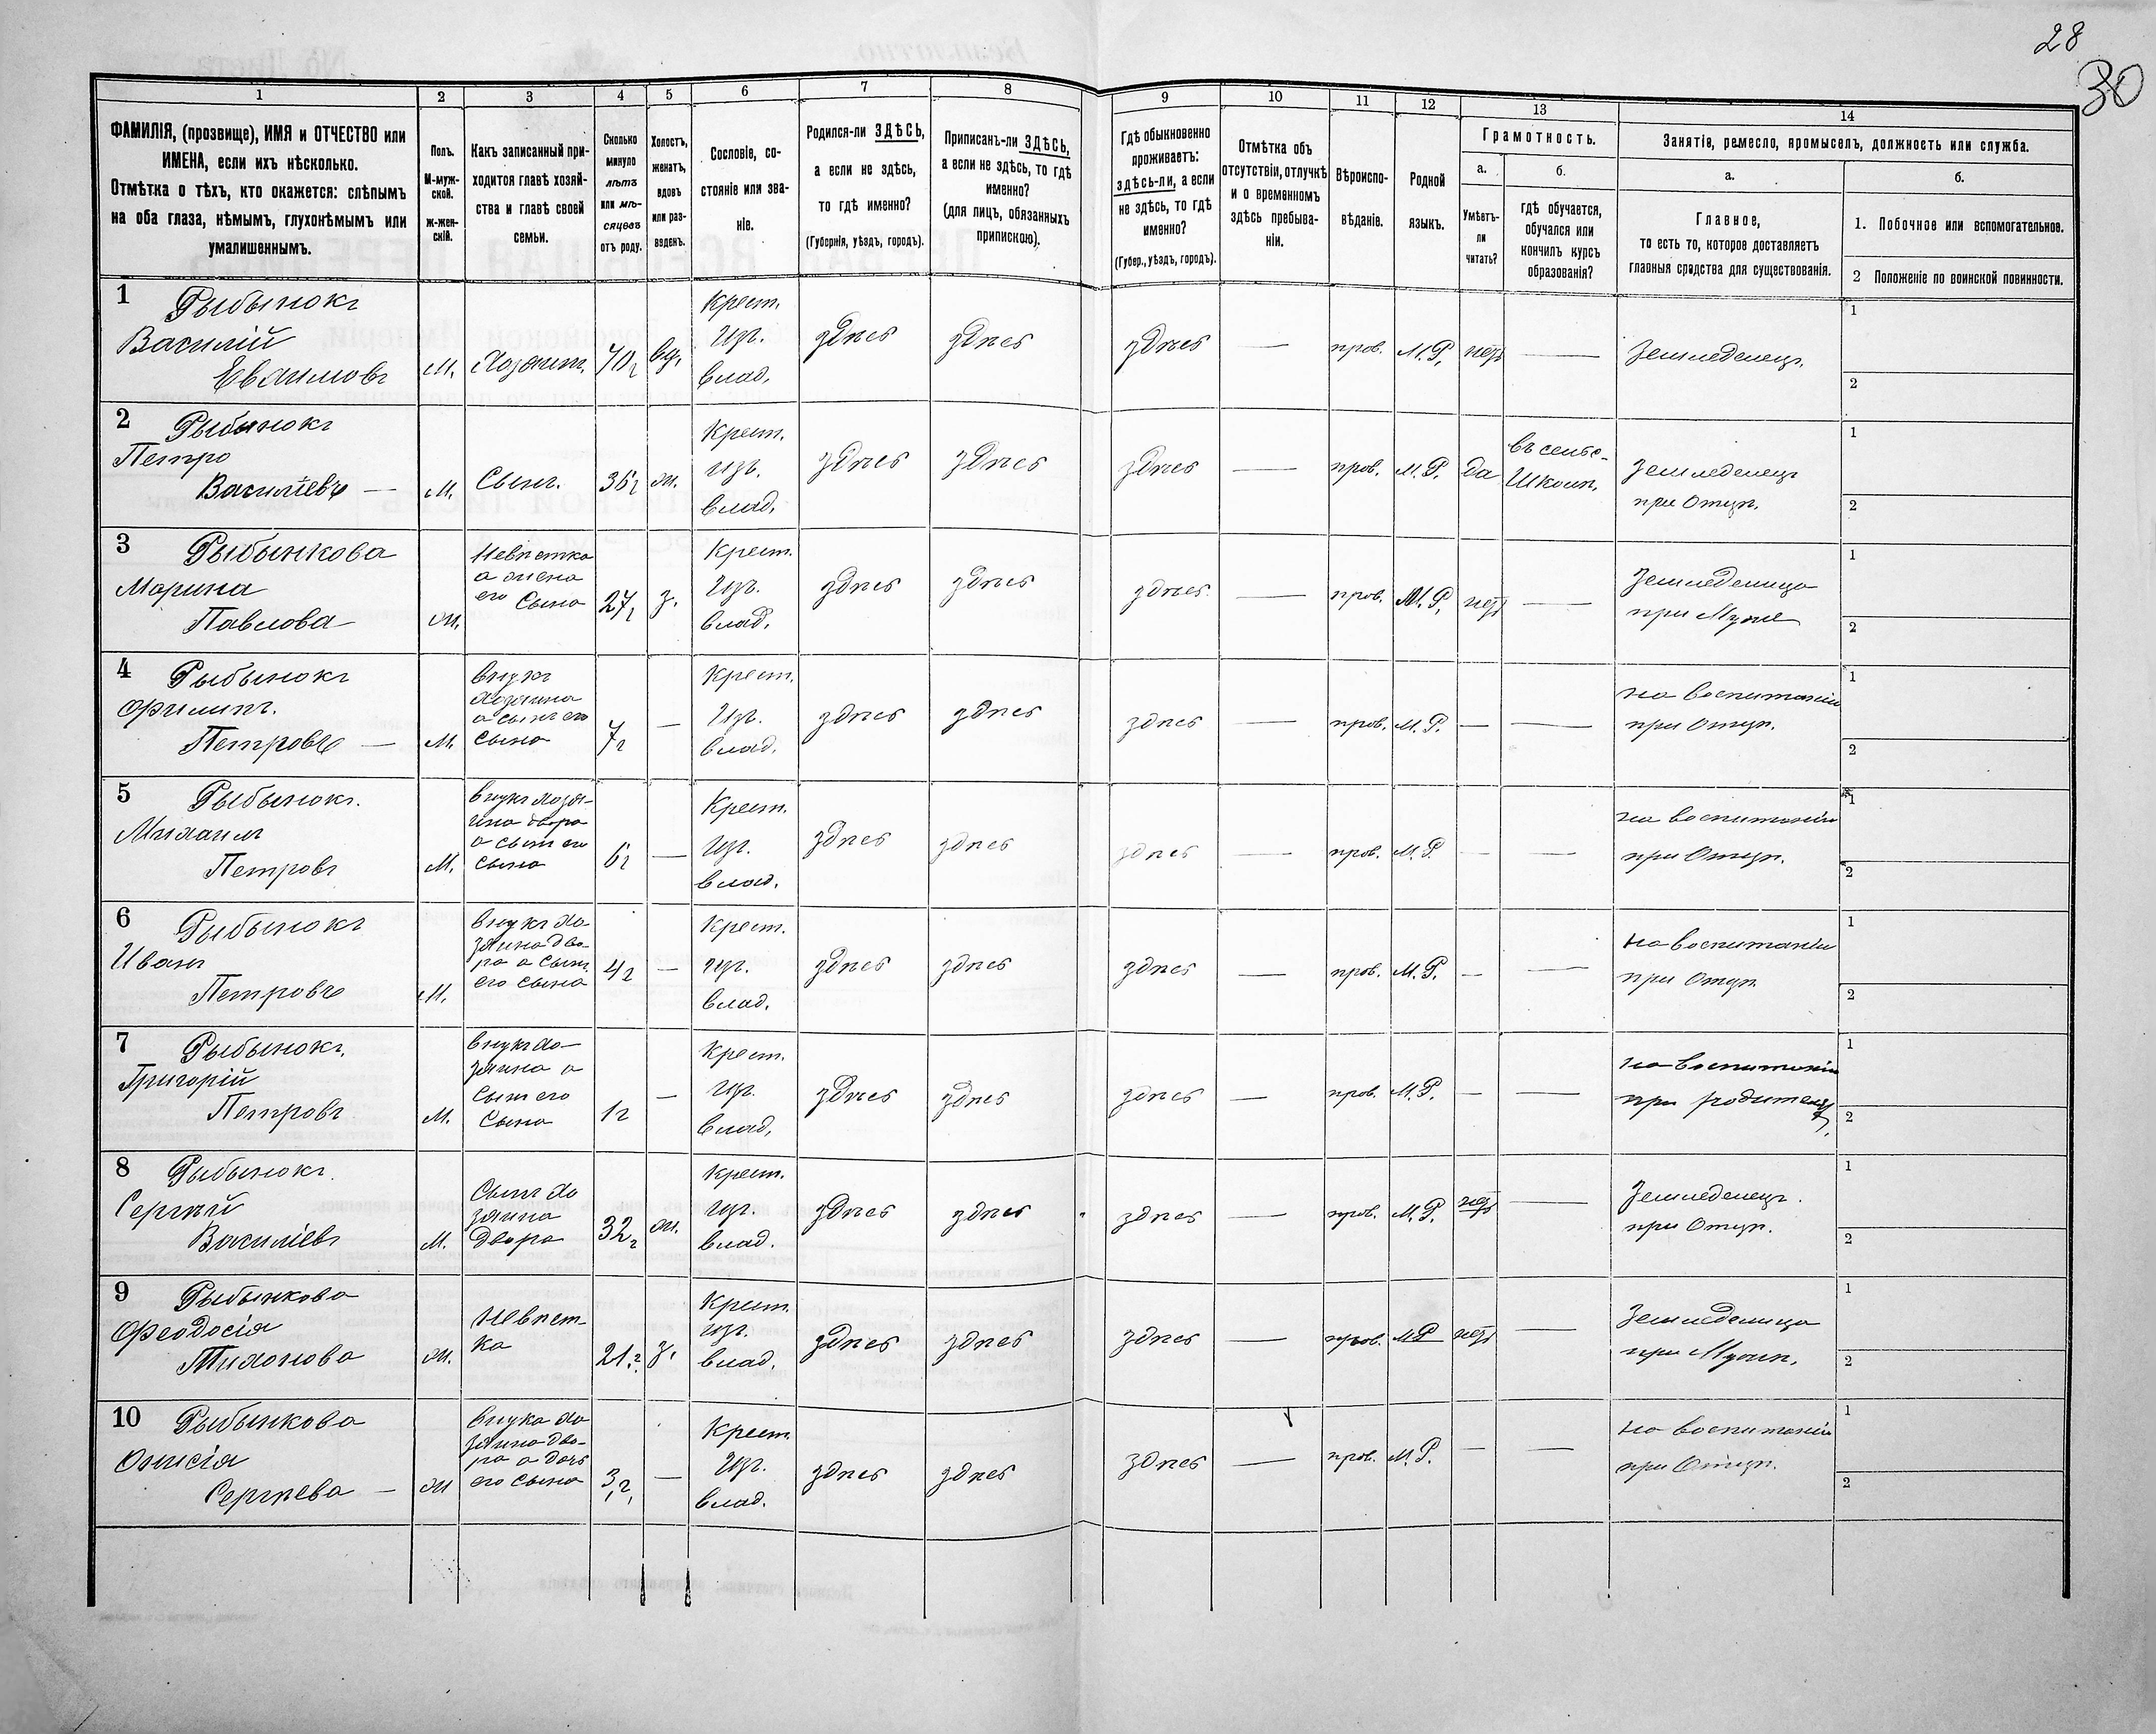 28
30
1 2 3 4 5 6 7 8 9 10 11 12 13 14
ФАМИЛІЯ, (прозвище), ИМЯ и ОТЧЕСТВО или
ИМЕНА, если ихъ нѣсколько.
Отмѣтка о тѣхъ, кто окажется: слѣпымъ
на оба глаза, нѣмымъ, глухонѣмымъ или
умалишеннымъ.
Полъ.
М-муж-
ской.
Ж-жен-
скій.
Какъ записанный при-
ходится главѣ хозяй-
ства и главѣ своей
семьи.
Сколько
минуло
лѣтъ
или мѣ-
сяцевъ
отъ роду.
Холостъ,
женатъ,
вдовъ
или раз-
веденъ.
Сословіе, со-
стояніе или зва-
ніе.
Родился-ли ЗДѢСЬ,
а если не здѣсь,
то гдѣ именно?
(Губернія, уѣздъ, городъ).
Приписанъ-ли ЗДѢСЬ,
а если не здѣсь, то гдѣ
именно?
(для лицъ, обязанныхъ
припискою).
Гдѣ обыкновенно
проживаетъ:
здѣсь-ли, а если
не здѣсь, то гдѣ
именно?
(Губер., уѣздъ, городъ).
Отмѣтка объ
отсутствіи, отлучкѣ
и о временномъ
здѣсь пребыва-
ніи.
Вѣроиспо-
вѣданіе.
Родной
языкъ.
Грамотность.
а.
Умѣетъ-
ли
читать?
б.
гдѣ обучается,
обучался или
кончилъ курсъ
образованія?
Занятіе, ремесло, промыселъ, должность или служба.
а.
Главное,
то есть то, которое доставляетъ
главныя средства для существованія.
б.
1. Побочное или вспомогательное.
2 Положеніе по воинской повинности.
1 Рыбынокъ
Василій
Евдимовъ
М.
Хозяинъ.
70 г
вд.
Крест.
изъ.
влад.
здѣсь
здѣсь
здѣсь
—
прав.
М.Р.
нетъ
—
Земледелецъ.
1
2
2 Рыбынокъ
Петро
Василіевъ —
М.
Сынъ.
36 г
ж.
Крест.
изъ.
влад.
здѣсь
здѣсь
здѣсь
—
прав.
М.Р.
да
въ сельс-
школѣ.
Земледелецъ
при Отцѣ.
1
2
3 Рыбынкова
Марина
Павлова
ж.
Невѣстка
а жена
его Сына
27 г
з.
Крест.
изъ.
влад.
здѣсь
здѣсь
здѣсь.
—
прав.
М.Р.
нетъ
—
Земледелица
при Муже
1
2
4 Рыбынокъ
Филипъ.
Петровъ —
М.
внукъ
хозяина
а сынъ его
сына
7 г
—
Крест.
изъ.
влад.
здѣсь
здѣсь
здѣсь
—
прав.
М.Р.
—
—
на воспитаніи
при Отцѣ.
1
2
5 Рыбынокъ.
Михаилъ
Петровъ
М.
внукъ хозя-
ина двора
а сынъ его
сына
6 г
—
Крест.
изъ.
влад.
здѣсь
здѣсь
здѣсь
—
прав.
М.Р.
—
—
на воспитаніи
при Отцѣ.
1
2
6 Рыбынокъ
Иванъ
Петровъ
М.
внукъ хо
зяина дво-
ра а сынъ
его сына
4 г
—
Крест.
изъ.
влад.
здѣсь
здѣсь
здѣсь
—
прав.
М.Р.
—
—
на воспитаніи
при Отцѣ
1
2
7 Рыбынокъ.
Григорій
Петровъ
М.
внукъ хо—
зяина а
Сынъ его
Сына
1 г
—
Крест.
изъ.
влад.
здѣсь
здѣсь
здѣсь
—
прав.
М.Р.
—
—
на воспитаніи
при родителях
1
2
8 Рыбынокъ.
Сергѣй
Василіевъ
М.
Сынъ хо
зяина
двора
32 г
ж.
Крест.
изъ.
влад.
здѣсь
здѣсь
здѣсь
—
прав.
М.Р.
нетъ
—
Земледелецъ.
при Отцѣ.
1
2
9 Рыбынкова
Феодосія
Тихонова
ж.
Невѣст-
ка
21 г
з.
Крест.
изъ.
влад.
здѣсь
здѣсь
здѣсь
—
прав.
М.Р
нетъ
—
Земледелица
при Мужѣ.
1
2
10 Рыбынкова
Онисія
Сергѣева —
ж
внука хо
зяина дво-
ра а дочь
его сына
3 г.
—
Крест.
изъ.
влад.
здѣсь
здѣсь
здѣсь
—
прав.
М.Р.
—
—
на воспитаніи
при Отцѣ.
1
2